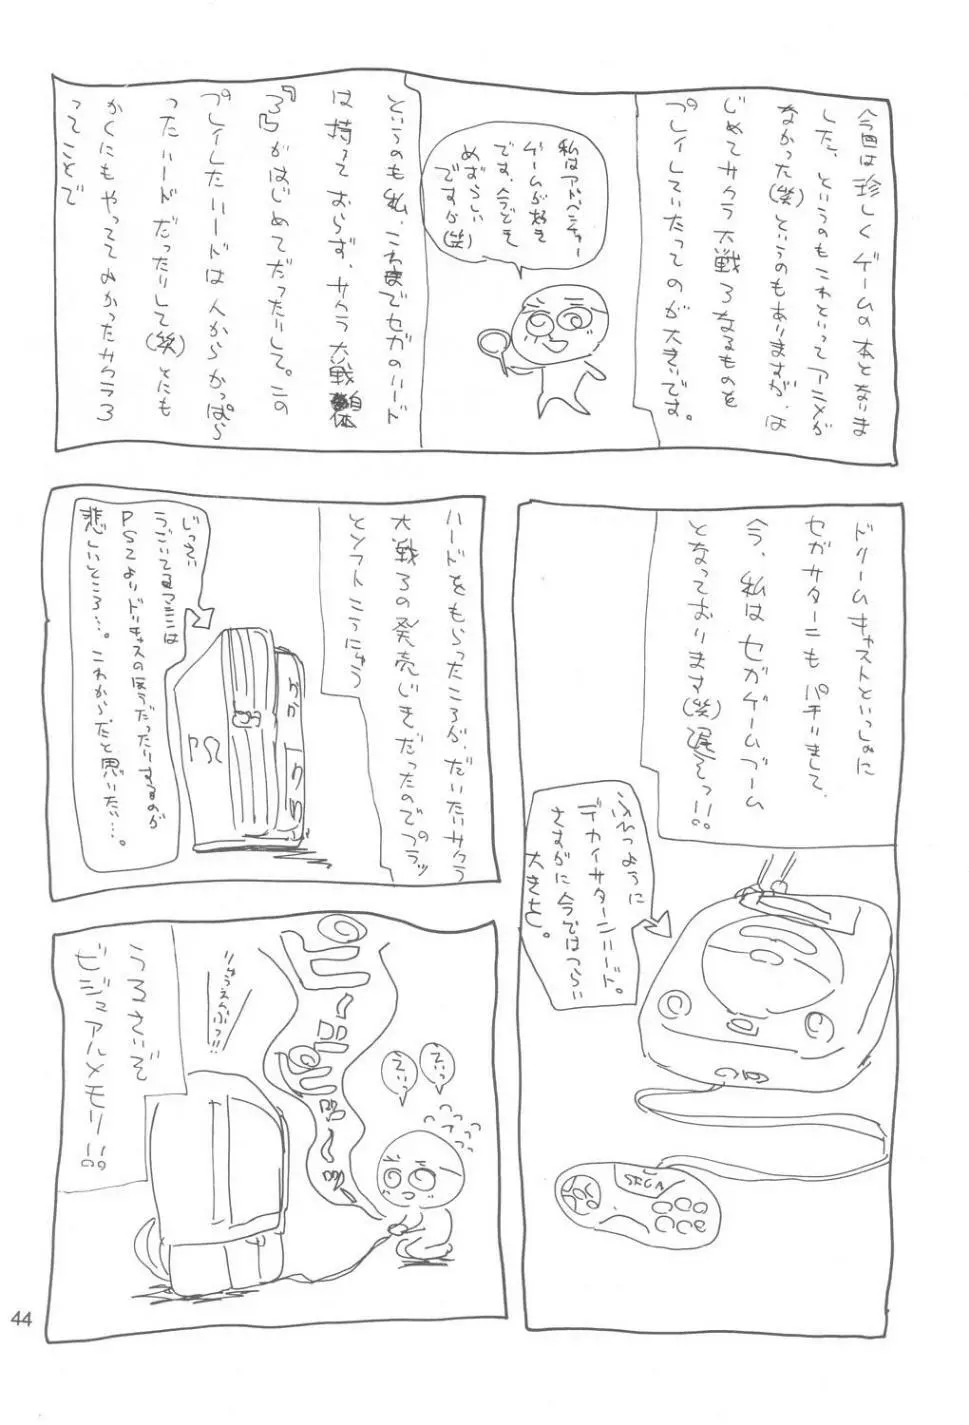 今回は珍しくゲームの本となりま
した、というのもこれといってアニメが
なかった(笑)というのもありますが、は
じめてサクラ大戦3なるものを
プレイしていたってのが大きいです。
私はアドベンチャー
ゲームが好き
です、今どき
めずらしい
ですが(笑)
というのも私、これまでセガのハード
は持っておらず、サクラ大戦自体
『3』がはじめてだったりして。この
プレイしたハードは人からかっぱら
ったハードだったりして(笑)とにも
かくにもやっててよかったサクラ3
ってことで
ドリームキャストといっしょに
セガサターンもパチりまして、
今、私はセガゲームブーム
となっております(笑)遅そっ!!
ふつように
デカイサターンハード。
さすがに今ではつらい
大きさ。
SEGA
ハードをもらったころが、だいたいサクラ
大戦3の発売じきだったのでプラッ
とソフトこうにゅう
じっさい
うごいてるアニメは
PS2よりドリキャスのほうだったりするのが
悲しいところ…。これからだと思いたい…。
PS2
うるさいぞ
ビジュアルメモリー!!
じゅうでんぶっ!!
ピーーー
えいっ
えいっ
44